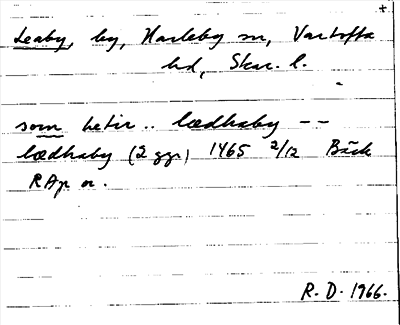 +
Leaby, by, Karleby sn, Vartofta
hd, Skar. l.
som hetir .. lædhaby --
lædhaby (2 ggr) 1465 2/12 Bäck
RAp or.
R. D. 1966.